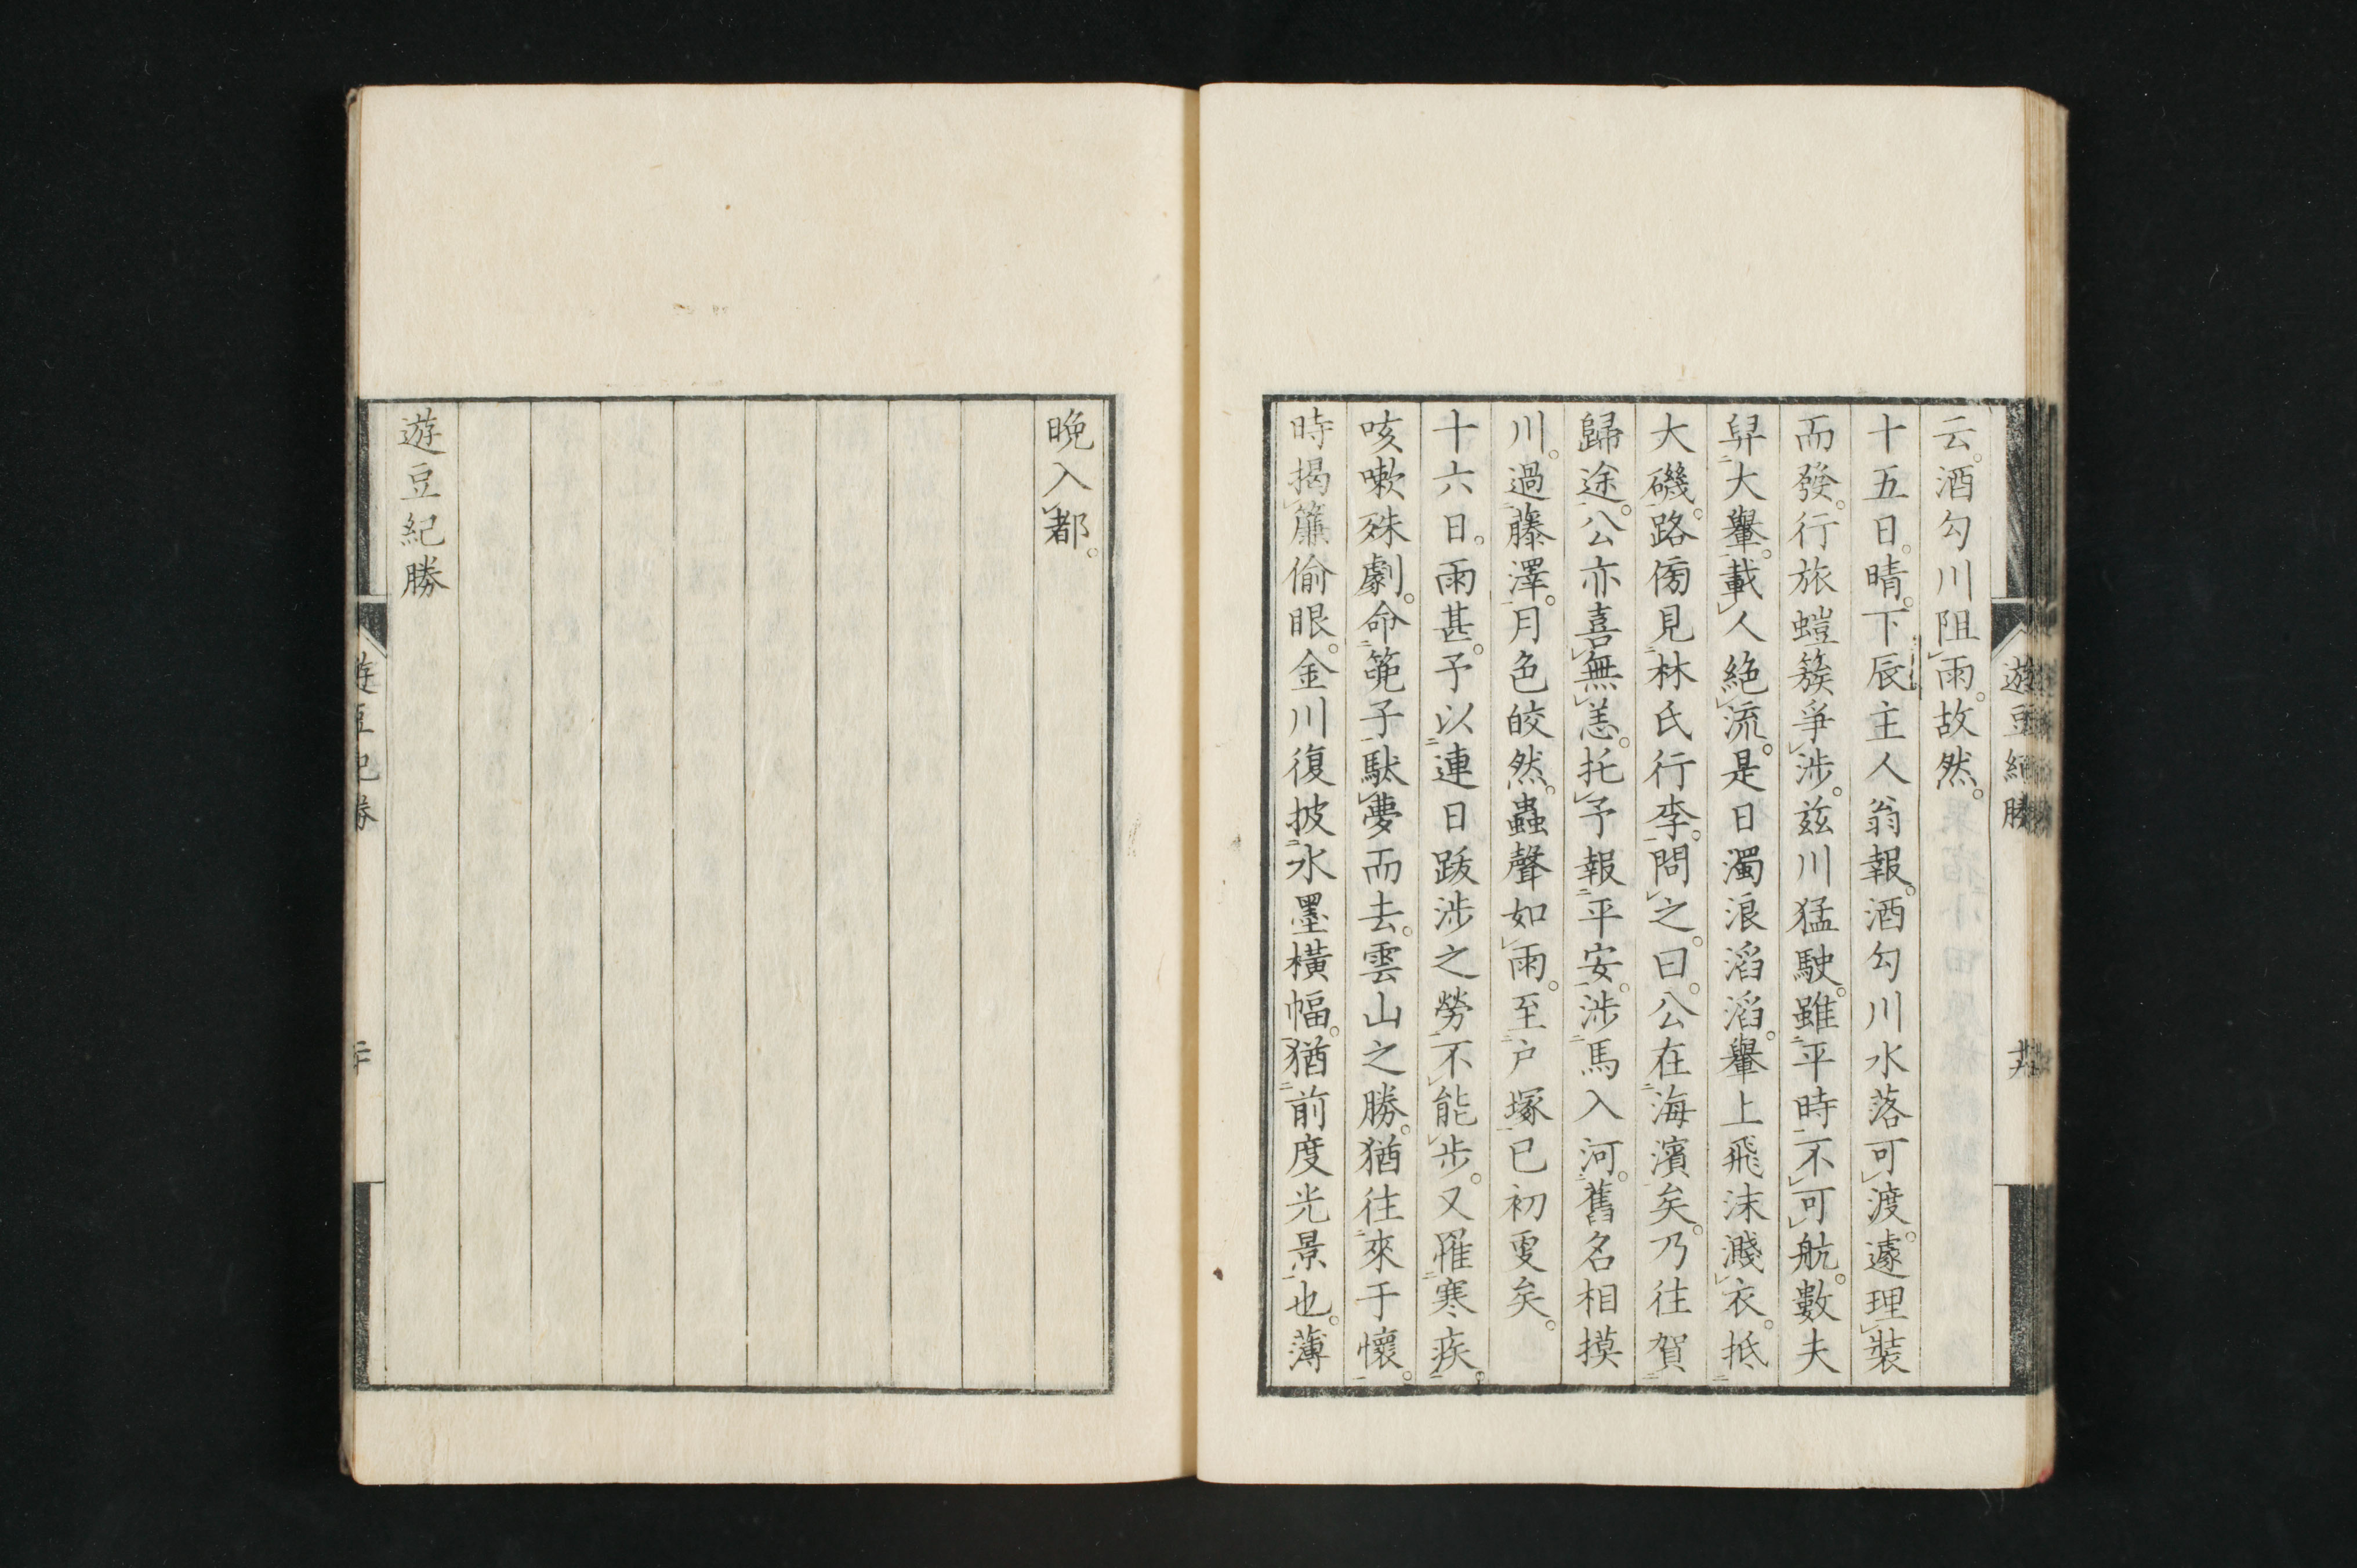 云。酒勾川阻雨。故然。
十五日。晴。下辰主人翁報。酒勾川水落可渡。遽理裝
而發。行旅螘簇爭渉。茲川猛駛。雖平時不可航。數夫
舁大轝。載人絶流。是日濁浪滔滔。轝上飛沫濺衣。抵
大磯。路傍見林氏行李。問之。曰。公在海濱矣。乃往賀
歸途。公亦喜無恙。托予報平安。渉馬入河。舊名相摸
川。過藤澤。月色皎然。蟲聲如雨。至戸塚已初更矣。
十六日。雨甚。予以連日跋渉之勞不能歩。又罹寒疾。
咳嗽殊劇。命箯子駄夢而去。雲山之勝。猶往來于懷。
時揭簾偷眼。金川復披水墨橫幅。猶前度光景也。薄
晩入都。
遊豆紀勝
遊豆紀勝